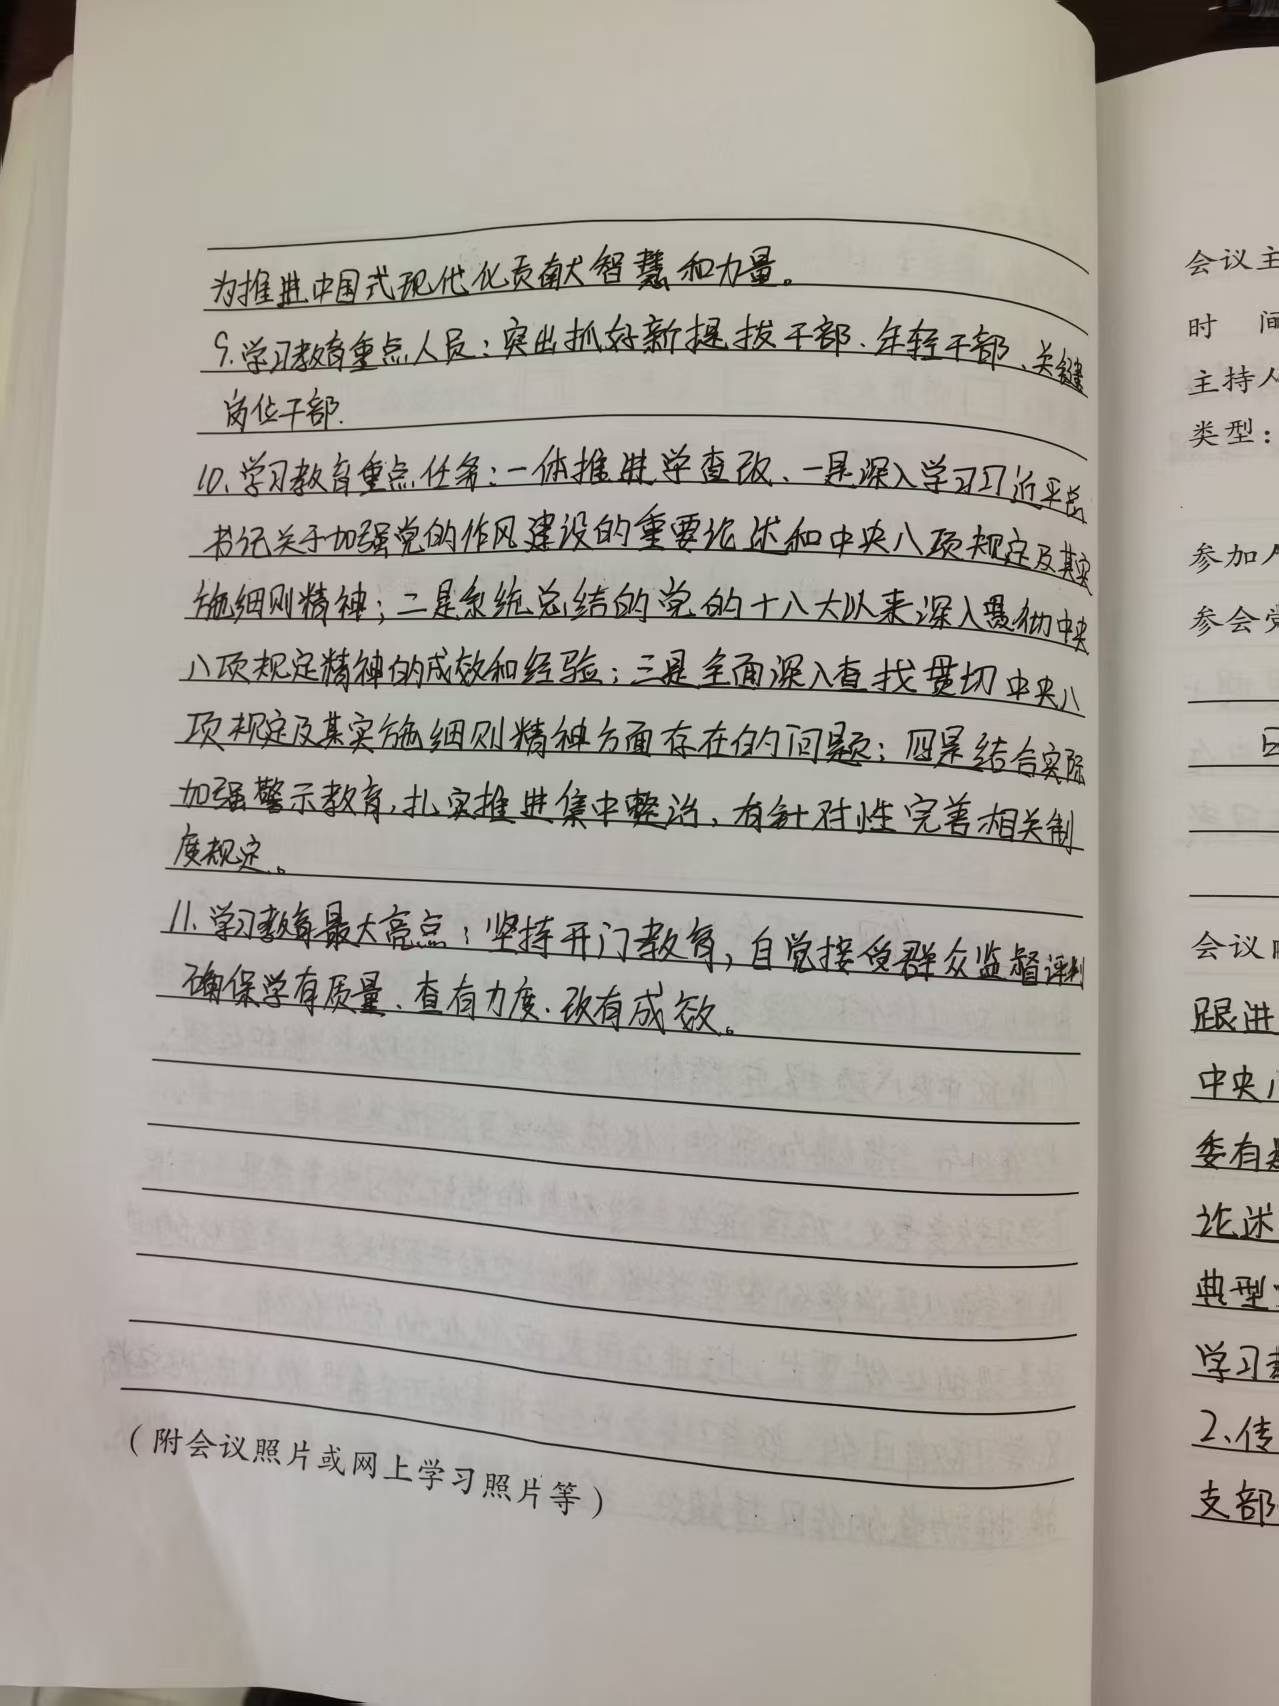 为推进中国式现代化贡献大智慧和力量。
9.学习教育重点人员：突出抓好新提拔干部、年轻干部、关键
岗位干部.
10、学习教育重点任务：一体推进学查改、一是深入学习习近平总
书记关于加强党的作风建设的重要论述和中央八项规定及其实
施细则精神；二是系统总结的党的十八大以来深入贯彻中央
八项规定精神的成效和经验；三是全面深入查找贯切中央八
项规定及其实施细则精神方面存在的问题；四是结合实际
加强警示教育，扎实推进集中整治、有针对性完善相关制
度规定。
11.学习教育最大亮点：坚持开门教育，自觉接受群众监督评判
确保学有质量、查有力度、改有成效。
（附会议照片或网上学习照片等）
会议主
时 间
主持人
类型：
参加人
参会党
会议内
跟进
中央八
委有
论述
典型
学习
2、传
支部